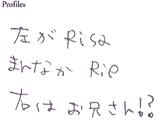 Profiles
左が Risa
まんなか Rie
右は お兄さん!?